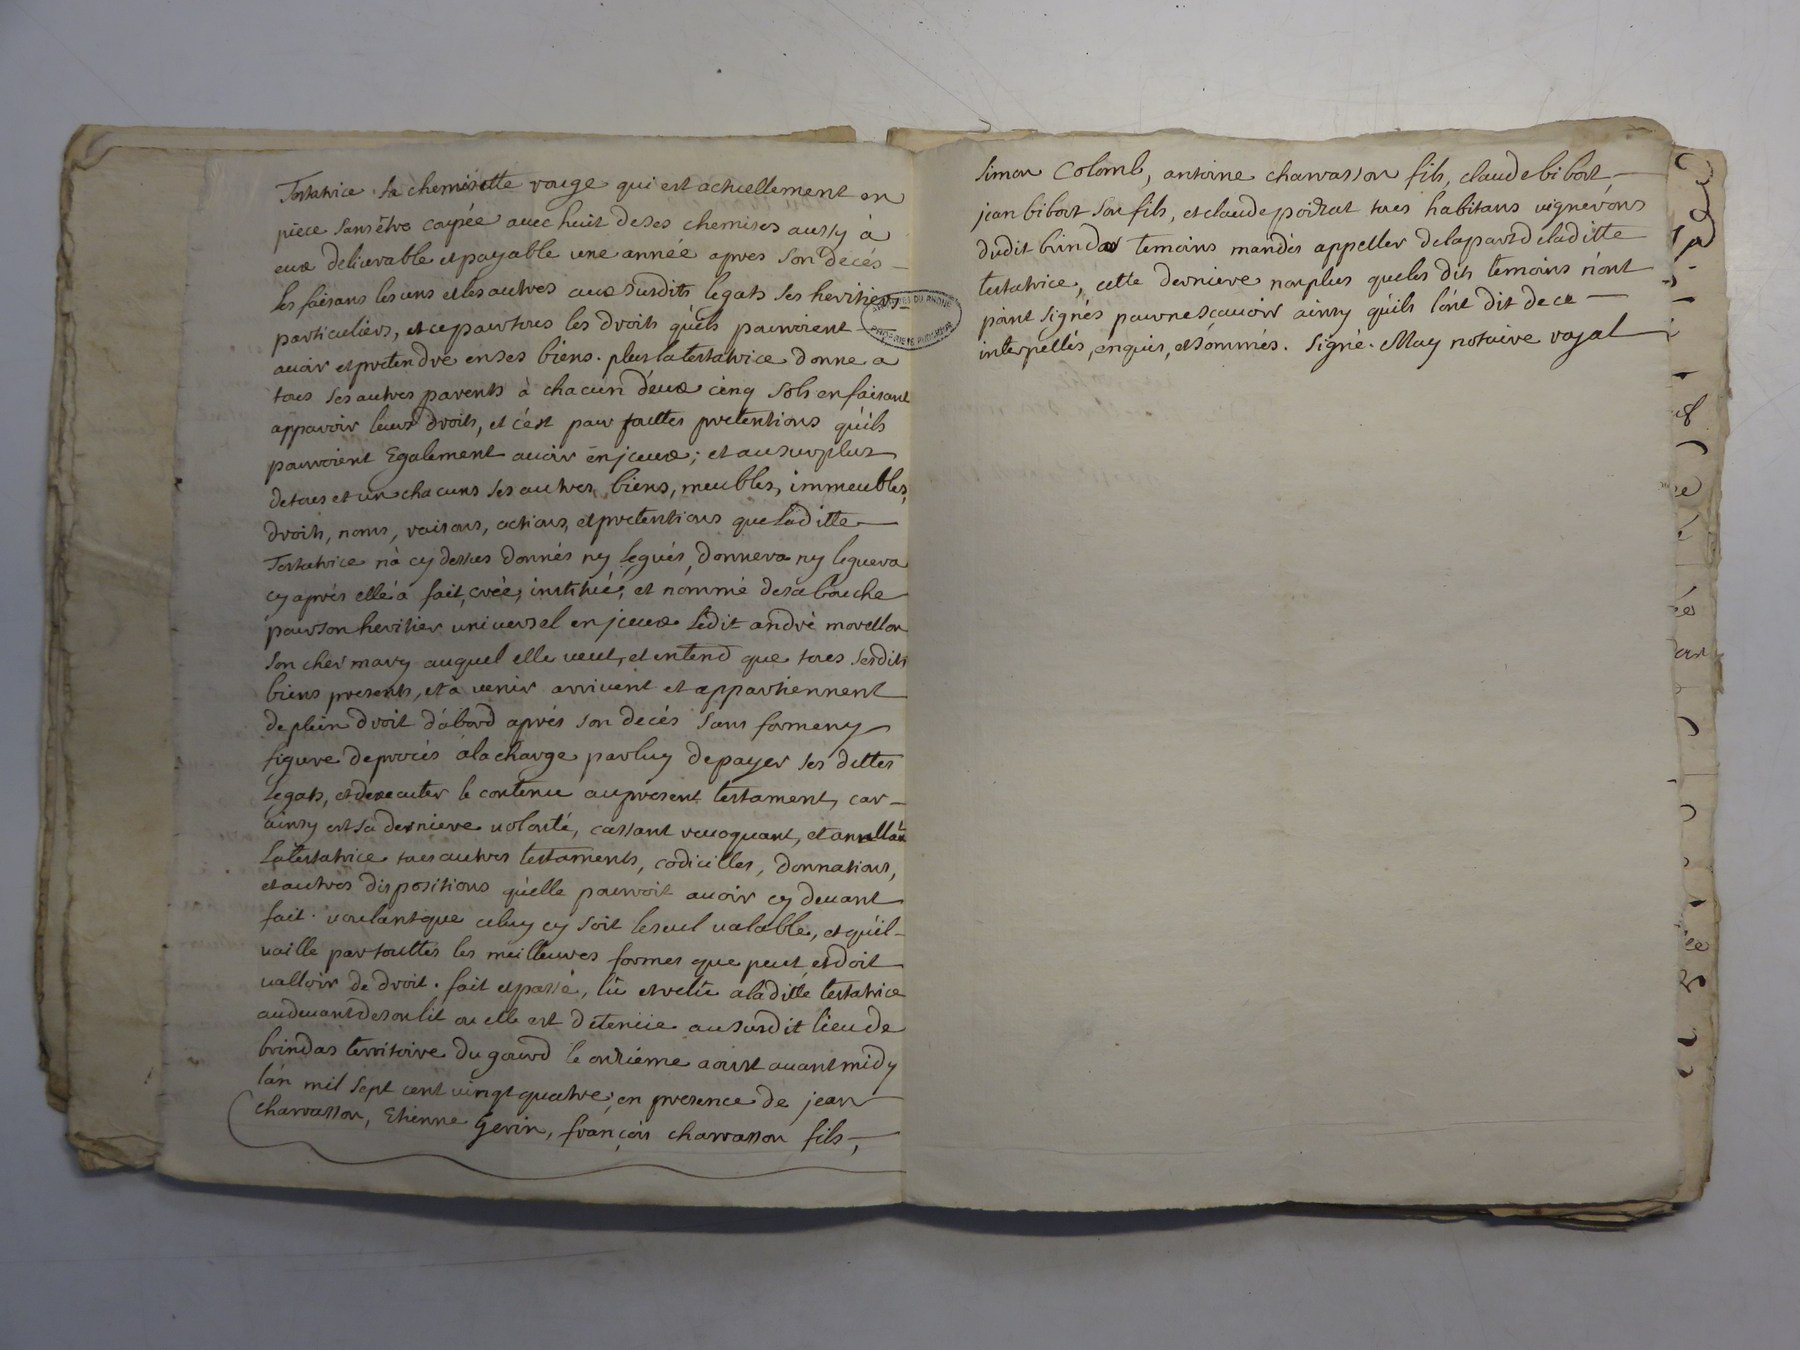 Testatrice sa chemisette rouge qui est actuellement en
piece sans être coupée avec huit de ses chemises aussy à
eux delivrable et payable une année apres son decés
les faisans les uns et les autres aux susdits legats ses heritiers
particuliers, et ce pour tous les droits qu'ils pourroient
avoir et pretendre en ses biens. plus la testatrice donne a
tous ses autres parents à chacun d'eux cinq sols en faisant
apparoir leurs droits, et c'est pour touttes pretentions qu'ils
pourroient Egalement avoir en jceux; et au surplus
de tous et un chacuns ses autres biens, meubles, immeubles,
droits, noms, raisons, actions, et pretentions que laditte
Testatrice n'à cy dessus donnés ny legués, donnera ny leguera
cy aprés elle à fait, créé, institué, et nommé de sa bouche
pour son heritier universel en jceux ledit andré morellon
son cher mary auquel elle veut, et entend que tous sesdits
biens presents, et a venir arrivent et appartiennent
de plein droit d'abord aprés son decés sans forme ny
figure de procés à la charge par luy de payer ses dettes
legats, et d'executer le contenu au present testament, car
ainsy est sa derniere volonté, cassant revoquant, et annullant
la testatrice tous autres testaments, codicilles, donnations,
et autres dispositions qu'elle pourroit avoir cy devant
fait. voulant que celuy cy soit le seul valable, et qu'il
vaille par touttes les meilleures formes que peut et doit
valloir de droit. fait et passé, lû et relû a laditte testatrice
au devant de son lit ou elle est detenüe au susdit lieu de
brindas territoire du gourd le onziéme aoust avant midy
l'an mil sept cent vingt quatre, en presence de jean
charvasson, Etienne Gerin, françois charvasson fils,
simon Colomb, antoine charvasson fils, claude bibost,
jean bibost son fils, et claude poizat tous habitans vignerons
dudit brindas temoins mandés appellés de la part de laditte
testatrice, cette derniere non plus que lesdits temoins n'ont
point signés pour ne sçavoir ainsy qu'ils l'ont dit de ce
interpellés, enquis, et sommés. Signé. May notaire royal
PROPRIETE PUBLIQUE